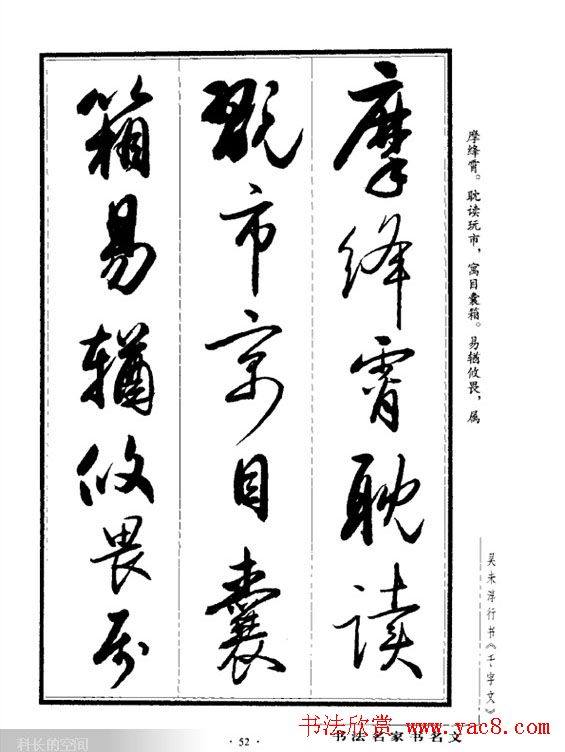 摩绛霄。耽读玩市，寓目囊箱。易𬨎攸畏，属
摩绛霄耽读
翫市寓目囊
箱易輶攸畏属
吴未淳行书《千字文》
· 52 ·
书法名家书名文
书法欣赏 www.yac8.com
科长的空间